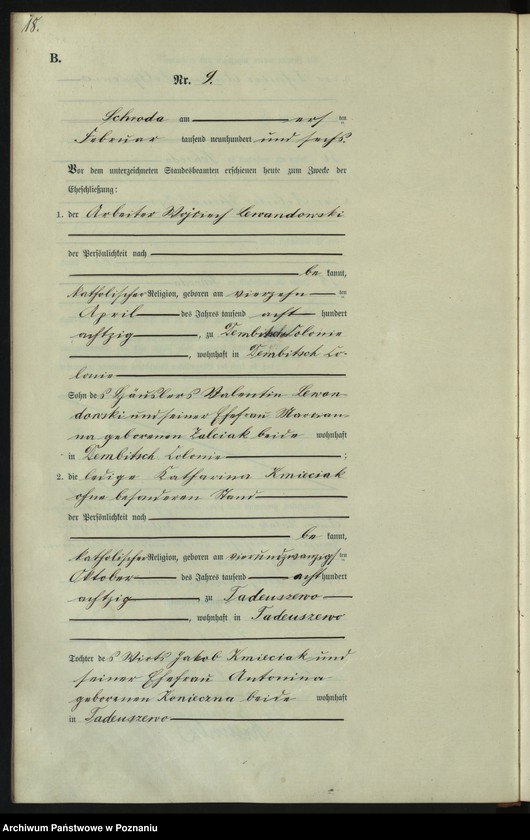 18.
B.
Nr. 9.
Schroda am ersten
Februar tausend neunhundert und sechs.
Vor dem unterzeichneten Standesbeamten erschienen heute zum Zwecke der
Eheschließung:
1. der Arbeiter Wojciech Lewandowski
der Persönlichkeit nach
be kannt,
katholischer Religion, geboren am vierzehn ten
April des Jahres tausend acht hundert
achtzig, zu Dembitsch Colonie
, wohnhaft in Dembitsch Co-
lonie
Sohn des Häuslers Valentin Lewan-
dowski und seiner Ehefrau Marian-
na geborenen Zalciak beide wohnhaft
in Dembitsch Colonie ;
2. die ledige Katharina Kmieciak
ohne besonderen Stand
der Persönlichkeit nach
be kannt,
katholischer Religion, geboren am vierundzwanzigsten
Oktober des Jahres tausend acht hundert
achtzig zu Tadeuszewo
, wohnhaft in Tadeuszewo
Tochter des Wirts Jakob Kmieciak und
seiner Ehefrau Antonina
geborenen Konieczna beide wohnhaft
in Tadeuszewo
Archiwum Państwowe w Poznaniu